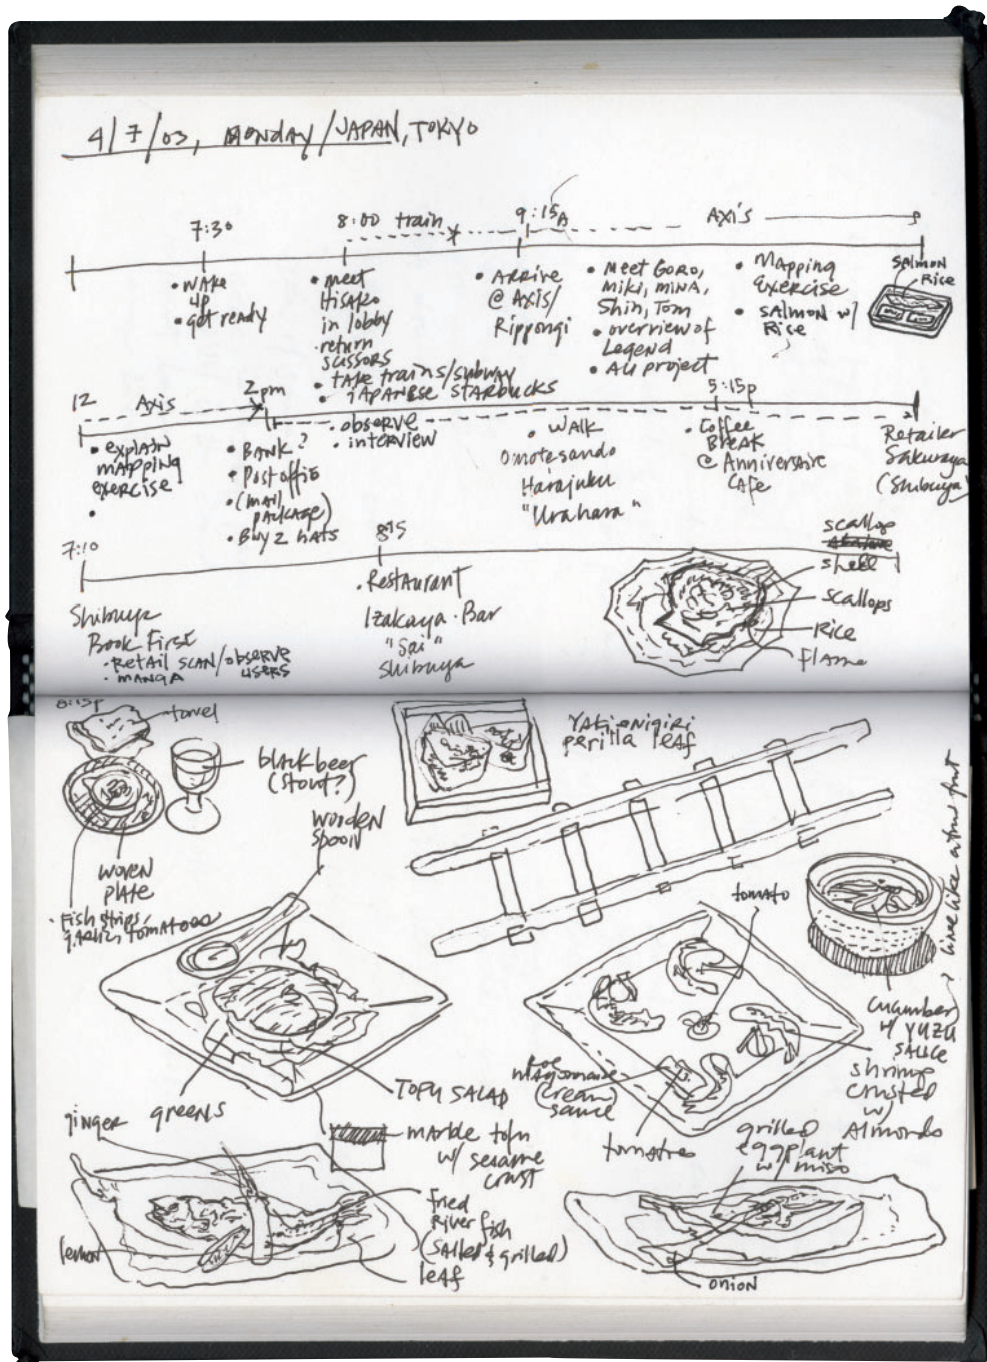 4/7/03, MONDAY/JAPAN, TOKYO
7:30
8:00 train
9:15A
AXIS
• WAKE
up
• get ready
• meet
Hisako
in lobby
• return
scissors
• TAKE trains/subway
• JAPANESE STARBUCKS
• ARRIVE
@ Axis/
Rippongi
• Meet GORO,
Miki, MINA,
Shin, Tom
• overview of
Legend
• AU project
• Mapping
Exercise
• SALMON w/
Rice
SALMON
Rice
12
Axis
2pm
5:15p
• explain
mapping
exercise
•
• BANK?
• Post office
• (mail
package)
• Buy 2 hats
• observe
• interview
• WALK
Omotesando
Harajuku
"Urahara"
• Coffee
BREAK
@ Anniversaire
CAFe
Retailer
Sakuraya
(Shibuya)
7:10
815
Shibuya
Book First
• RETAIL SCAN/observe
users
• MANGA
• Restaurant
Izakaya • Bar
"Sai"
Shibuya
scallop
shell
scallops
Rice
flame
8:15p
towel
black beer
(stout?)
woven
plate
• Fish strips,
garlic, tomatoes
wooden
spoon
Yaki onigiri
perilla leaf
tomato
cucumber
w/ YUZU
SAUCE
greens
TOFU SALAD
Roe
mayonnaise
(cream)
sauce
tomatoes
shrimp
crusted
w/
Almonds
ginger
marble tofu
w/ sesame
crust
grilled
eggplant
w/ miso
lemon
fried
River fish
(salted & grilled)
leaf
onion